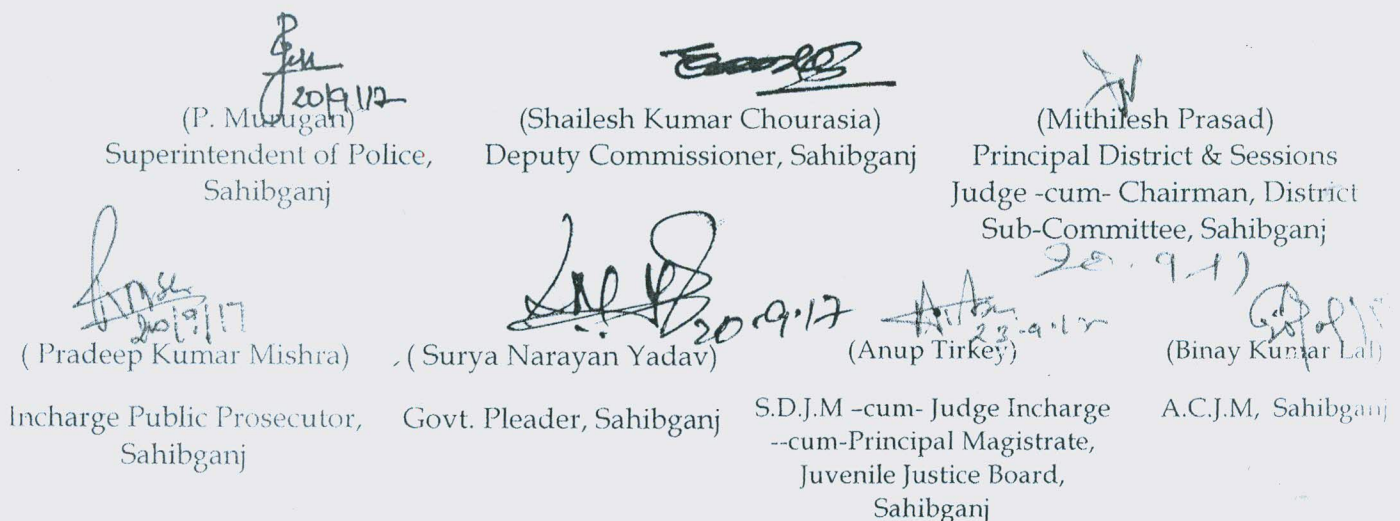 20/9/17
(P. Murugan)
Superintendent of Police,
Sahibganj
(Shailesh Kumar Chourasia)
Deputy Commissioner, Sahibganj
(Mithilesh Prasad)
Principal District & Sessions
Judge -cum- Chairman, District
Sub-Committee, Sahibganj
20.9.17
20/9/17
( Pradeep Kumar Mishra)
Incharge Public Prosecutor,
Sahibganj
20.9.17
( Surya Narayan Yadav)
Govt. Pleader, Sahibganj
(Anup Tirkey)
S.D.J.M –cum- Judge Incharge
--cum-Principal Magistrate,
Juvenile Justice Board,
Sahibganj
(Binay Kumar Lal)
A.C.J.M, Sahibganj